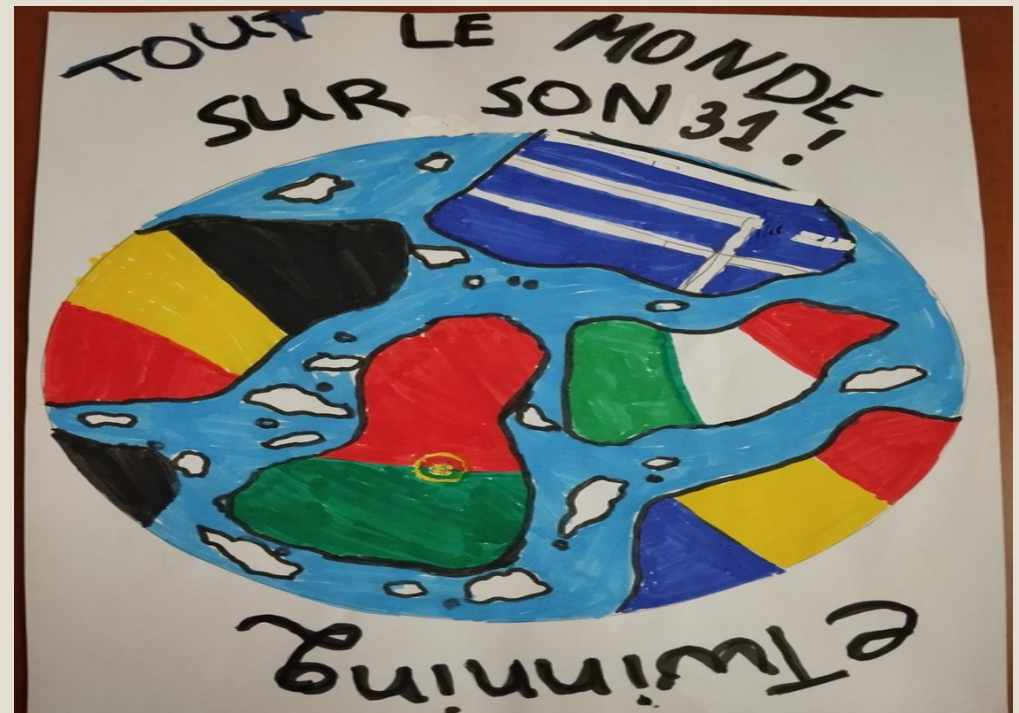 TOUT LE MONDE
SUR SON 31 !
eTwinning